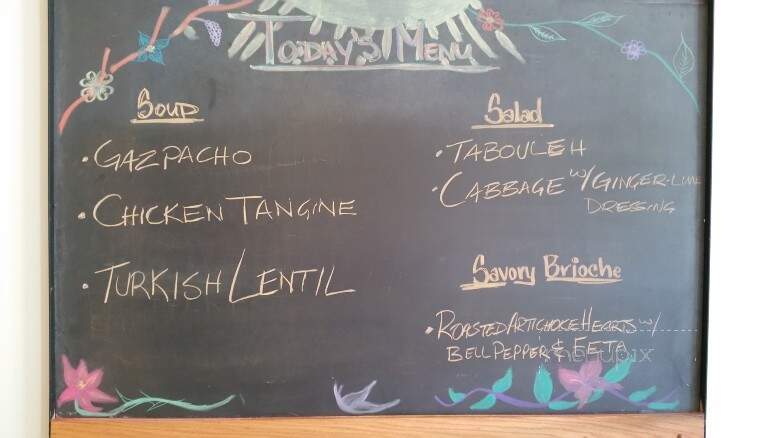 TODAY'S MENU
Soup
• GAZPACHO
• CHICKEN TANGINE
• TURKISH LENTIL
Salad
• TABOULEH
• CABBAGE W/ GINGER-LIME
DRESSING
Savory Brioche
• ROASTED ARTICHOKE HEARTS W/
BELL PEPPER & FETA
menupix